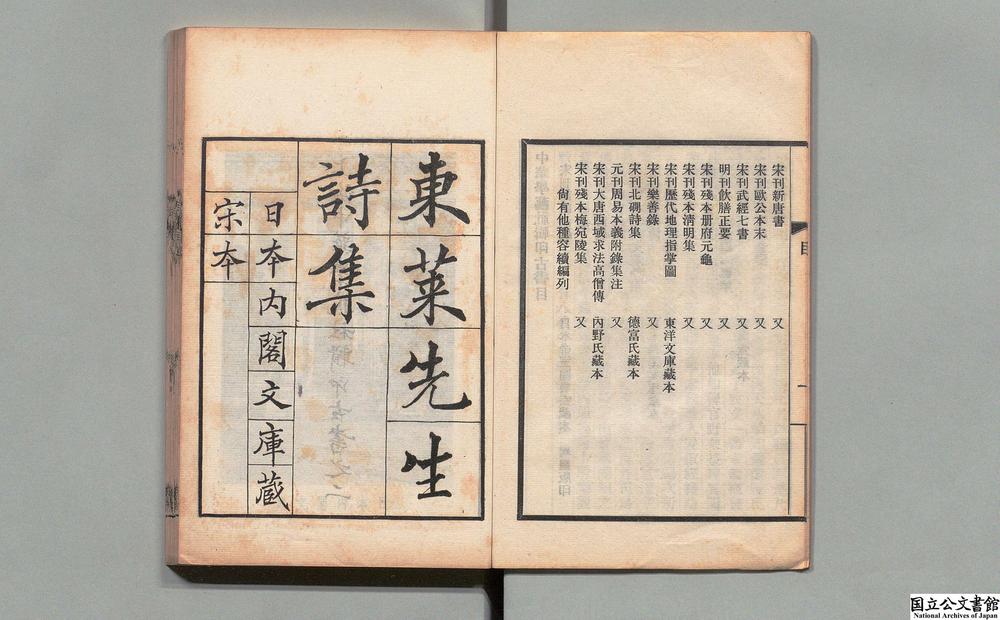 宋刊新唐書 又
宋刊歐公本末 又
宋刊武經七書 又
明刊飲膳正要 又
宋刊殘本册府元龜 又
宋刊殘本清明集 又
宋刊歷代地理指掌圖 東洋文庫藏本
宋刊樂善錄 又
宋刊北磵詩集 德富氏藏本
元刊周易本義附錄集注 又
宋刊大唐西域求法高僧傳 內野氏藏本
宋刊殘本梅宛陵集 又
尚有他種容續編列
目
一
東萊先生
詩集
日本内閣文庫蔵
宋本
国立公文書館
National Archives of Japan